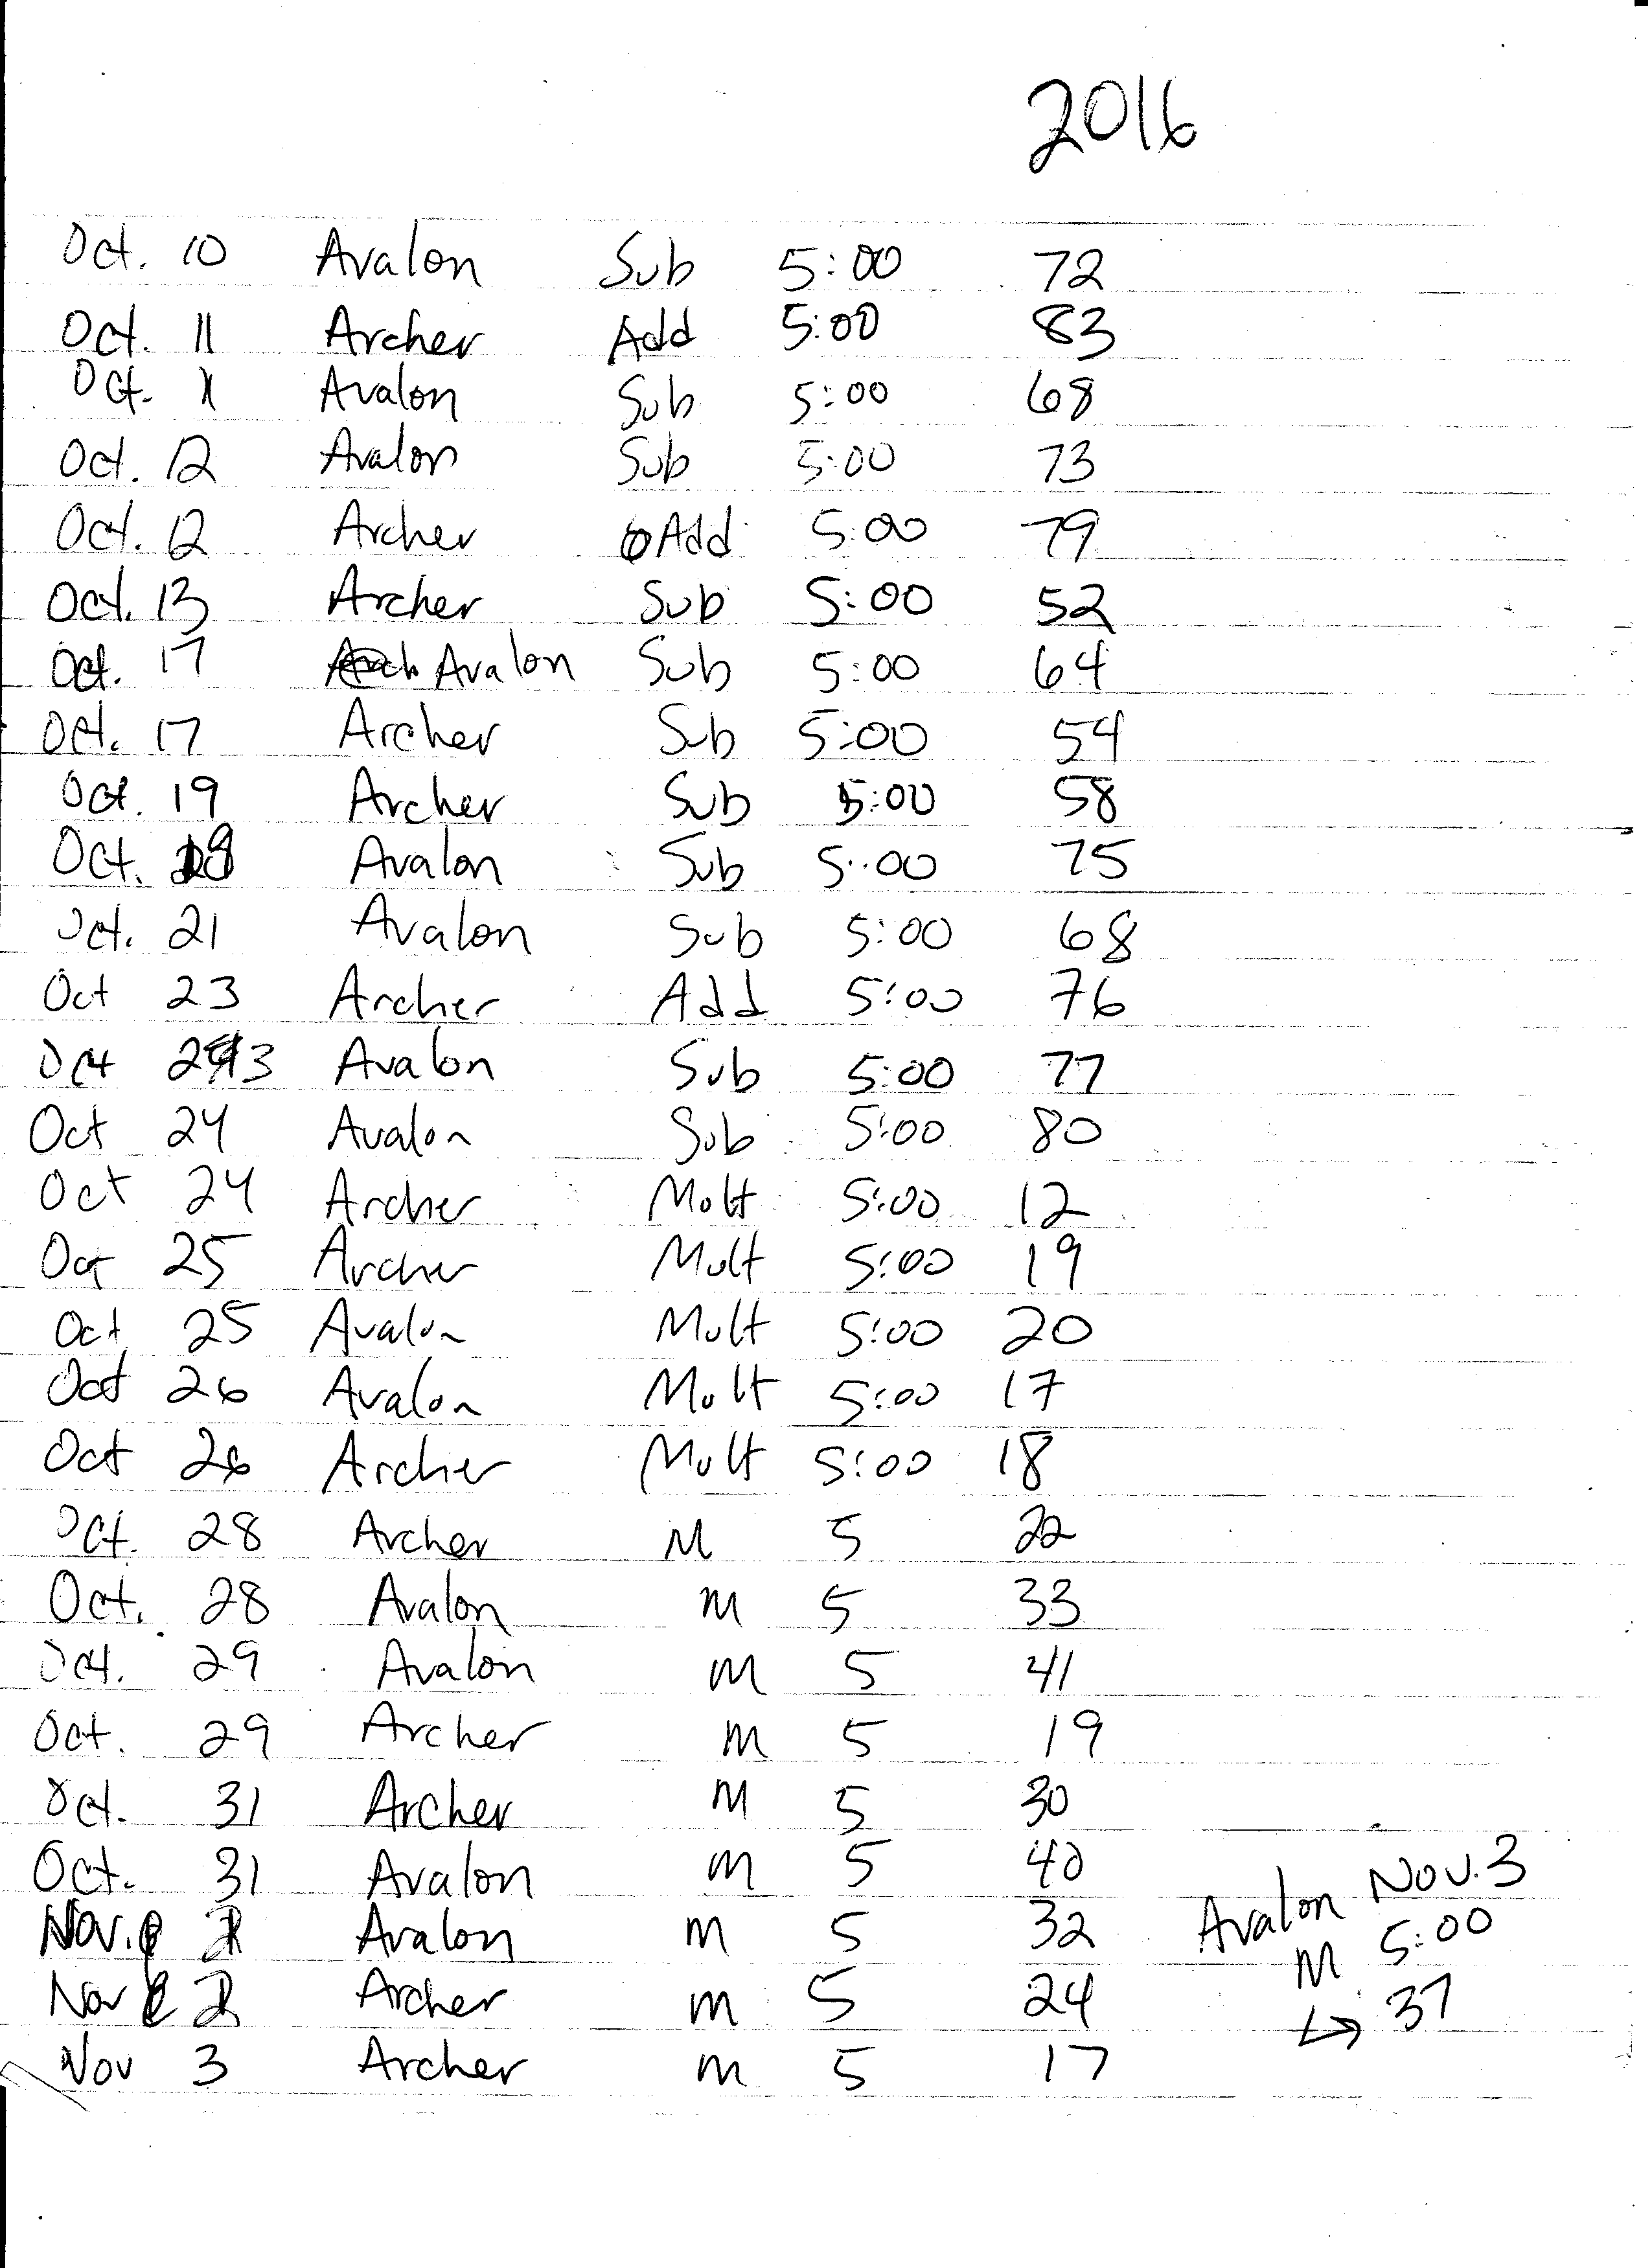 2016
Oct. 10 Avalon Sub 5:00 72
Oct. 11 Archer Add 5:00 83
Oct. 11 Avalon Sub 5:00 68
Oct. 12 Avalon Sub 5:00 73
Oct. 12 Archer Add 5:00 79
Oct. 13 Archer Sub 5:00 52
Oct. 17 Avalon Sub 5:00 64
Oct. 17 Archer Sub 5:00 54
Oct. 19 Archer Sub 5:00 58
Oct. 19 Avalon Sub 5:00 75
Oct. 21 Avalon Sub 5:00 68
Oct 23 Archer Add 5:00 76
Oct 23 Avalon Sub 5:00 77
Oct 24 Avalon Sub 5:00 80
Oct 24 Archer Mult 5:00 12
Oct 25 Archer Mult 5:00 19
Oct 25 Avalon Mult 5:00 20
Oct 26 Avalon Mult 5:00 17
Oct 26 Archer Mult 5:00 18
Oct. 28 Archer M 5 22
Oct. 28 Avalon M 5 33
Oct. 29 Avalon M 5 41
Oct. 29 Archer M 5 19
Oct. 31 Archer M 5 30
Oct. 31 Avalon M 5 40
Nov. Avalon M 5 32
Nov Archer M 5 24
Nov 3 Archer M 5 17
Avalon Nov. 3
M 5:00
↳ 37